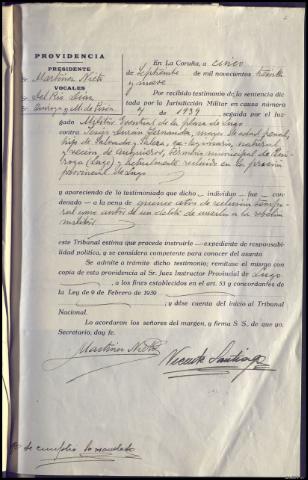 PROVIDENCIA
PRESIDENTE
Martínez Nieto
VOCALES
del Río
En La Coruña, a cinco
de Septiembre de mil novecientos treinta
y nueve
Por recibido testimonio de la sentencia dic-
tada por la Jurisdicción Militar en causa número
de 1939 seguida por el Juz-
gado Militar de la plaza de Lugo
contra Jesús mayor de edad penal,
hijo de y natural
y vecino de término municipal de
(Lugo) y actualmente recluido en la prisión
provincial de Lugo
y apareciendo de lo testimoniado que dicho individuo fue con-
denado a la pena de quince años de reclusión temporal
como autor de un delito de auxilio a la rebelión
militar
este Tribunal estima que procede instruirle expediente de responsabi-
lidad política, y se considera competente para conocer del asunto
Se admite a trámite dicho testimonio; remítase al margen con
copia de esta providencia al Sr. Juez Instructor Provincial de Lugo
a los fines establecidos en el art. 53 y concordantes de
la Ley de 9 de Febrero de 1939
y dése cuenta del inicio al Tribunal
Nacional.
Lo acordaron los señores del margen, y firma S. S. de que yo,
Secretario, doy fe.
Martínez Nieto
Vicente Santiago
se cumplió lo mandado